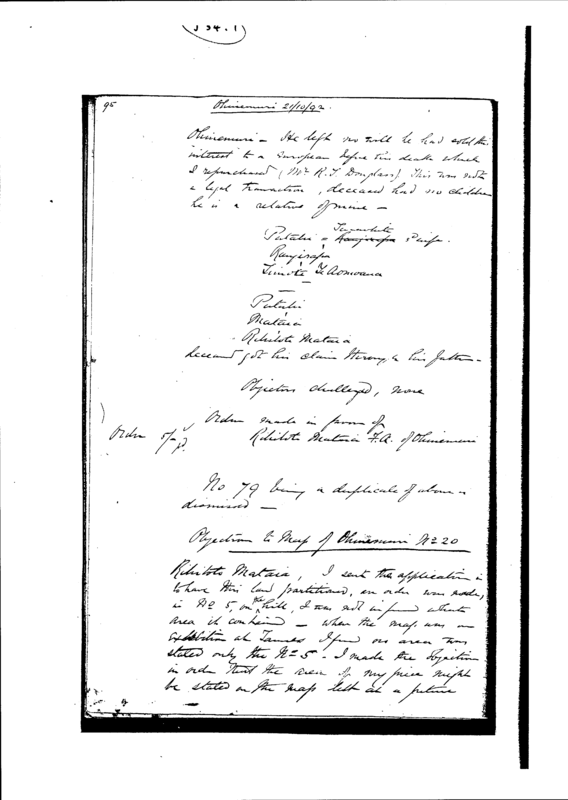 95
Ohinemuri 21/10/92.
Ohinemuri – He left no will he had sold the
interest to a European before his death which
I repurchased (Mr R. T. Douglass) This was not
a legal transaction, deceased had no children
he is a relative of mine –
Patahi =
Rangirapa
Te Aomoana
Patahi
Mataia
Rihitoto Mataia
deceased got his claim through his father –
Objectors challenged, none
Order made in favor of
Order 5/- pd.
Rihitoto Mataia F.A. of Ohinemuri
No 79 being a duplicate of above is
dismissed –
Objection to Map of Ohinemuri No 20
Rihitoto Mataia, I sent the application in
to have this land partitioned, an order was made,
is No 5, on the hill, I was not informed what
area it contained – when the map was on
exhibition at Thames I found no area was
stated only the No 5 – I made the objection
in order that the area of my piece might
be stated on the map lest in a future